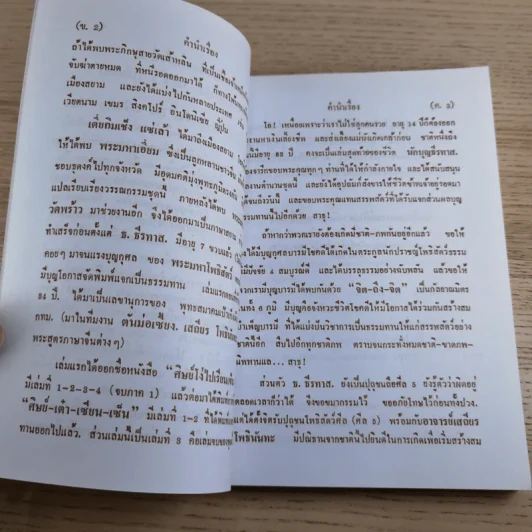 (ข. 2)
คำนำเรื่อง
ถ้าได้พบพระภิกษุสายวัดเส้าหลิน ที่เป็น
จับฆ่าตายหมด ที่หนีรอดออกมาได้ ก็ทางใต้
เมืองสยาม และยังได้แบ่งไปกันหลายประเทศ
เวียดนาม เขมร สิงคโปร์ อินโดนีเซีย ญี่ปุ่น
ได้มาถึงเมืองสยาม
ให้ได้พบ พระมหาเอี่ยม ซึ่งเป็นลูกหลานชาวจีน
ชอบธุดงค์ไปทุกจังหวัด มีอุดมคติมุ่งพุทธภูมิ
แปลเรียบเรียงวรรณกรรมชุดนี้ ภายหลังได้พบ
วัดพร้าว มาช่วยงานอีก จึงได้ออกมาเป็นภาษา
ทำเสร็จก่อนตั้งแต่ ธ. ธีรทาส. มีอายุ 7 ขวบ
คอยๆ มาจนแรงบุญกุศล ของ พระมหาโพธิสัตว์
มีบุญโอกาสจัดพิมพ์แจกเป็นธรรมทาน เล่มแรก
34 ปี. ได้มาเป็นเลขานุการของ พุทธสมาคม
กทม. (มาในทีมงาน ตันม่อเซี้ยง. เสถียร
พระสูตรภาษาจีนต่างๆ)
เล่มแรกได้ออกชื่อหนังสือ "ศิษย์โง่ไปเรียน
มีเล่มที่ 1-2-3-4 (จบภาค 1) แล้วต่อมาได้
"ศิษย์-เต๋า-เซียน-เซ้น" มีเล่มที่ 1-2 ที่ได้
ทานออกไปแล้ว. ส่วนเล่มนี้เป็นเล่มที่ 3 คือเล่มจบของ
คำนำเรื่อง
(ค. 2)
โอ! เหนื่อยเพราะว่าเราไม่ใช่ลูกคนรวย อายุ 14 ปีก็ต้องออก
หาเงินเลี้ยงชีพ และส่งเสียแม่บังเกิดเกล้าก่อน ชาตินี้
อายุ 82 ปี คงจะเป็นเล่มสุดท้ายของชีวิต นักบุญธีรทาส.
ขอบพระคุณทุกๆ ท่านที่ได้ให้กำลังกายใจ และได้สนับสนุน
และขอบพระคุณแทนสรรพสัตว์ที่ได้รับแจกส่วนผลบุญ
ธรรมทานนี้ไปอีกด้วย สาธุ!
ถ้าหากว่าพวกเรายังต้องเกิดมีชาติ-ภพกันอยู่อีกแล้ว ขอให้
ได้มีบุญกุศลบารมีชดใช้ให้ได้เกิดในตระกูลนักปราชญ์โพธิสัตว์ธรรม
ปัจจัย 4 สมบูรณ์ดี และได้บรรลุธรรมอย่างฉับพลัน แล้วขอให้
เรามีบุญบารมีที่ได้พบกันด้วย "จิต-ถึง-จิต" เป็นกัลยาณมิตร
ทั้ง 6 ภูมิ มีบุญอีกจังหวะชีวิตโชคดีให้มีโอกาสได้ร่วมกันสร้างสม
บำเพ็ญบารมี ที่ได้แบ่งปันวิชาการเป็นธรรมทานให้แก่สรรพสัตว์อย่าง
ชาตินี้อีก สืบไปอีกทุกชาติภพ ตราบจนกระทั่งหมดชาติ-ขาดภพ-
นิททานแล... สาธุ!
ส่วนตัว ธ. ธีรทาส. ยังเป็นปุถุชนถือศีล 5 ยังรู้ตัวว่าผิดอยู่
ตลอดเวลาก็ว่าได้ จึงขอขมากรรมไว้ ขออภัยโทษไว้ก่อนทั้งปวง.
ได้ตั้งจิตรับปฏิญาณโพธิสัตว์ศีล (ศีล 5) พร้อมกับอาจารย์เสถียร
โพธินันทะ มีปณิธานจากชาตินี้ไปยินดีในการเกิดเพื่อเริ่มสร้างสม